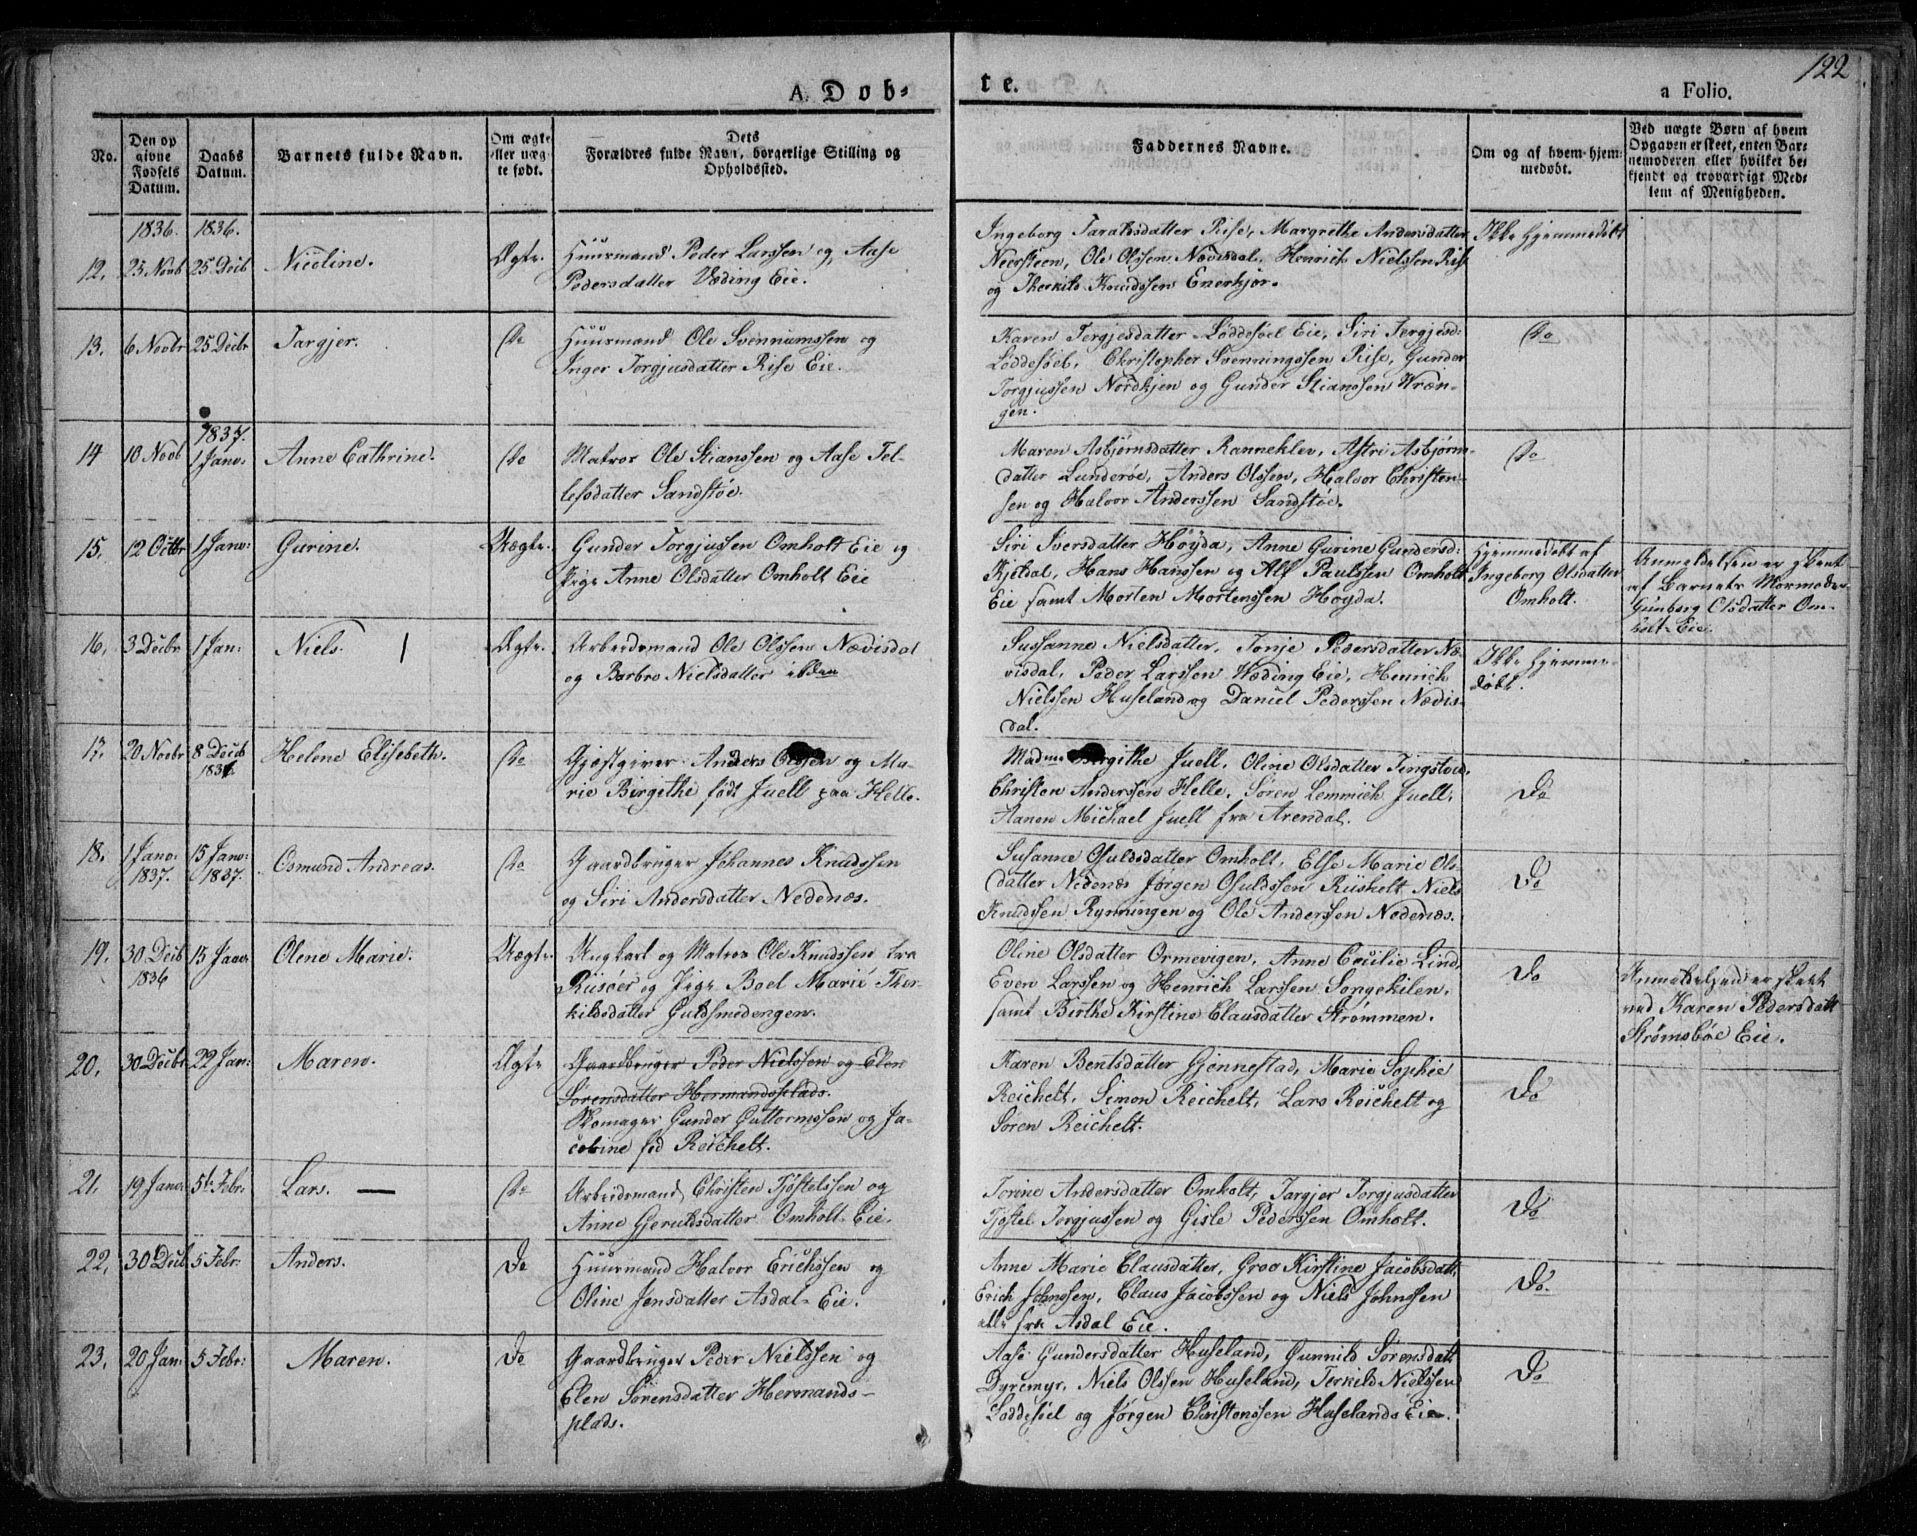 122
A. Døb-
te.
a Folio.
No.
Den op
givne
Fødsels
Datum.
Daabs
Datum.
Barnets fulde Navn.
Om ægte
eller uæg-
te født.
Dets
Forældres fulde Navn, borgerlige Stilling og
Opholdssted.
Faddernes Navne.
Om og af hvem hjem-
medøbt.
Ved uægte Børn af hvem
Opgaven er skeet, enten Bar-
nemoderen eller hvilket be-
kjendt og troværdigt Med-
lem af Menigheden.
1836. 1836.
12. 25 Novb 25 Decb Nicoline. Ægte. Huusmand Peder Larssen og Aase
Pedersdatter Væding Eie.
Ingeborg Taraldsdatter Rise, Margrethe Andersdatter
Neersteen, Ole Olssen Nævisdal, Henrich Nielssen Rise
og Therkild Knudssen Enerkjær.
Ikke Hjemmedøbt
13. 6 Novbr 25 Decbr Targjer. Do Huusmand Ole Svennumssen og
Inger Torgjusdatter Rise Eie.
Karen Tergjesdatter Løddesøel Eie, Siri Tergjesd:
Løddesøel, Christopher Svenningssen Rise, Gunder
Torgjussen Nordkjen og Gunder Stianssen Vræn-
gen.
Do
1837.
14 10 Novb 1 Janv: Anne Cathrine. Do Matros Ole Stianssen og Aase Tel-
lefsdatter Sandstøe.
Maren Asbjørnsdatter Ranneklev, Astri Asbjørns-
datter Lunderøe, Anders Olssen, Halvor Christen-
sen og Halvor Anderssen Sandstøe.
Do
15. 12 Octbr 1 Janv: Gurine. Uægte. Gunder Torgjussen Omholt Eie og
Pige Anne Olsdatter Omholt Eie
Siri Iversdatter Høyda, Anne Gurine Gundersd:
Kjetdal, Hans Hanssen og Alf Paulssen Omholt
Eie samt Morten Mortenssen Høyda.
Hjemmedøbt af
Ingeborg Olsdatter
Omholt.
Anmeldelsen er skeet
af Barnets Mormoder
Gunborg Olsdatter Om-
holt-Eie.
16. 3 Decbr 1 Jan: Niels. Ægte. Arbeidsmand Ole Olssen Nævisdal
og Barbro Nielsdatter ibden
Susanne Nielsdatter, Tonje Pedersdatter Næ-
visdal, Peder Larssen Væding Eie, Henrich
Nielssen Huseland og Daniel Pederssen Nævis-
dal.
Ikke Hjemme-
døbt.
17. 20 Novbr 8 Decb
1836 Helene Elisebeth. Do Gjæstgiver Anders Olssen og Ma-
rie Birgithe født Juell paa Helle.
Madme Birgithe Juell, Oline Olsdatter Tingstved,
Christen Anderssen Helle, Søren Lemmich Juell,
Aanon Michael Juell fra Arendal.
Do
18. 1 Janv:
1837. 15 Janv:
1837. Osmund Andreas. Do Gaardbruger Johannes Knudssen
og Siri Andersdatter Nedenæs.
Susanne Osuldsdatter Omholt, Else Marie Ols-
datter Nedenæs Jørgen Osuldssen Riisholt Niels
Knudssen Rynningen og Ole Anderssen Nedenæs.
Do
19. 30 Decb
1836 15 Janv: Olene Marie. Uægte. Ungkarl og Matros Ole Knudssen fra
Riisøer og Pige Boel Marie Ther-
kildsdatter Guldsmedengen.
Oline Olsdatter Ormevigen, Anne Cecilie Lind,
Even Larssen og Henrich Larssen Songekilen,
samt Birthe Kirstine Clausdatter Strømmen.
Do
Anmeldelsen er skeet
ved Karen Pedersdatt.
Strømsbøe Eie.
20. 30 Decbr 22 Jan: Maren. Ægte Gaardbruger Peder Nielssen og Elen
Sørensdatter Hermandsplads.
Skomager Gunder Guttormssen og Ja-
cobine fød Reichelt.
Karen Bentsdatter Gjennestad, Marie Sophie
Reichelt, Simon Reichelt, Lars Reichelt og
Søren Reichelt.
Do
21. 19 Janv: 5t Febr: Lars. Do Arbeidsmand Christen Tjøstelssen og
Anne Gjeruldsdatter Omholt-Eie.
Torine Andersdatter Omholt, Targjer Torgjusdatter
Tjøstel Torgjussen og Gisle Pederssen Omholt.
Do
22. 30 Decb 5 Febr: Anders. Do Huusmand Halvor Erichssen og
Oline Jensdatter Asdal-Eie.
Anne Marie Clausdatter, Groe Kirstine Jacobsdatt.
Erich Johnssen, Claus Jacobssen og Niels Johnssen
alle fra Asdal Eie.
Do.
23. 20 Jan: 5 Febr: Maren. Do Gaardbruger Peder Nielssen og
Elen Sørensdatter Hermands-
plads.
Aase Gundersdatter Huseland, Gunnild Sørensdatt.
Dyremyr, Niels Olssen Huseland, Terkild Nielssen
Løddesøel og Jørgen Christenssen Huselands Eie.
Do